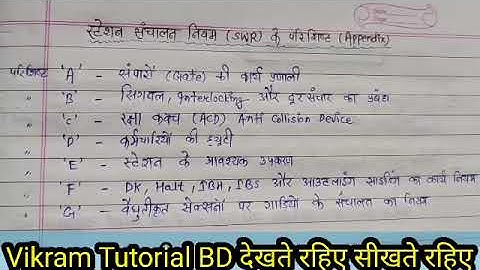 स्टेशन संचालन नियम (SWR) के परिशिष्ट (Appendix)
परिशिष्ट 'A' - संपारों (Gate) की कार्य प्रणाली
" 'B' - सिगनल, Interlocking और दूर संचार का प्रबंध
" 'C' - रक्षा कवच (ACD) Anti Collision Device
" 'D' - कर्मचारियों की ड्यूटी
" 'E' - स्टेशन के आवश्यक उपकरण
" 'F' - DK, Halt, IBH, IBS और आउटलाइंग साइडिंग का कार्य नियम
" 'G' - वैधुतीकृत सेक्सनों पर गाडियों के संचालन का नियम
Vikram Tutorial BD देखते रहिए सीखते रहिए